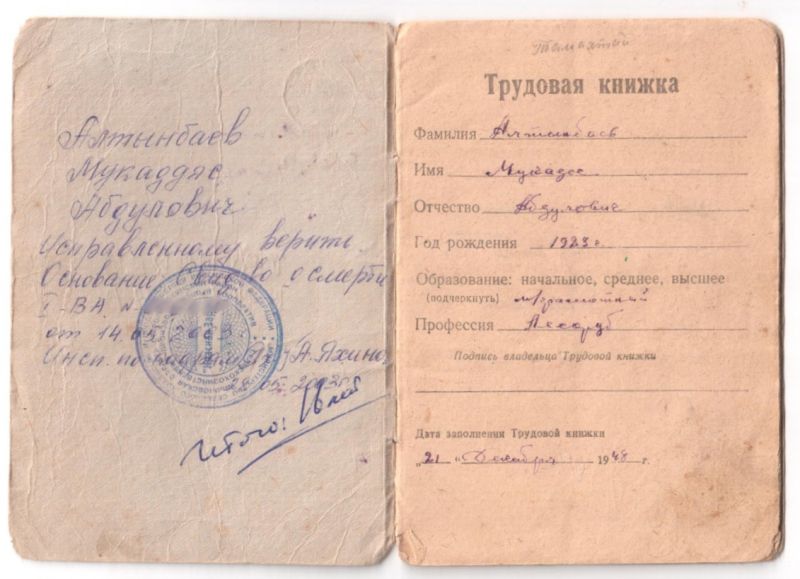 Алтынбаев
Мукаддяс
Абдулович
Исправленному верить.
Основание: о смерти
I-ВА №
от 14.
Инсп. по кадрам А. Яхина
05. 2003г.
Итого:
Трудовая книжка
Фамилия Алтынбаев
Имя Мукадес
Отчество Абдулович
Год рождения 1929 г.
Образование: начальное, среднее, высшее
(подчеркнуть) м/грамотный
Профессия Лесоруб
Подпись владельца Трудовой книжки
Дата заполнения Трудовой книжки
„21 “ Декабря 1948 г.